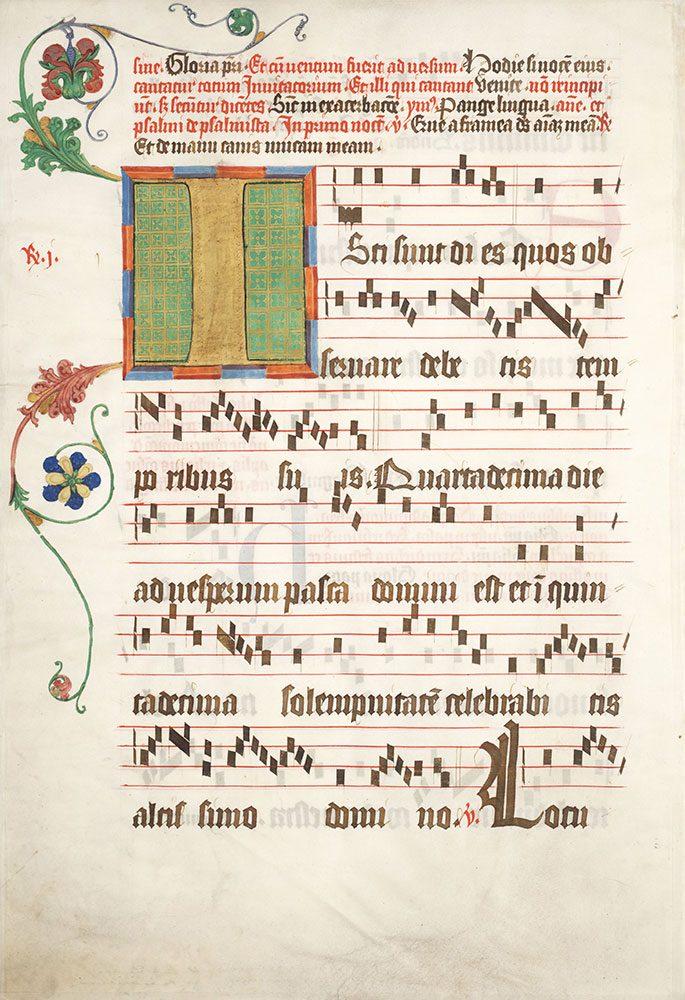 sine. Gloria p̄ri. Et cū uentum fuerit ad uersum. Hodie si uocē eius.
cantatur totum Inuitatorium. Et illi qui cantant Venite. nō incipi
ūt. sꝫ secūtur dicētes. Sic̄ in exacerbac̄oe. ymꝰ. Pange lingua. ane. et
psalmi de psalmista. In primo noct̄. ℣. Erue a framea dꝰ aīaꝫ meā. ℟.
Et de manu canis unicam meam.
℟. j.
I Sti sunt di es quos ob
seruare debe tis tem
po ribus su is. Quartadecima die
ad uesperum pasca domini est et ī quin
tadecima solempnitatē celebrabi tis
altis simo domi no. ℣. Locu